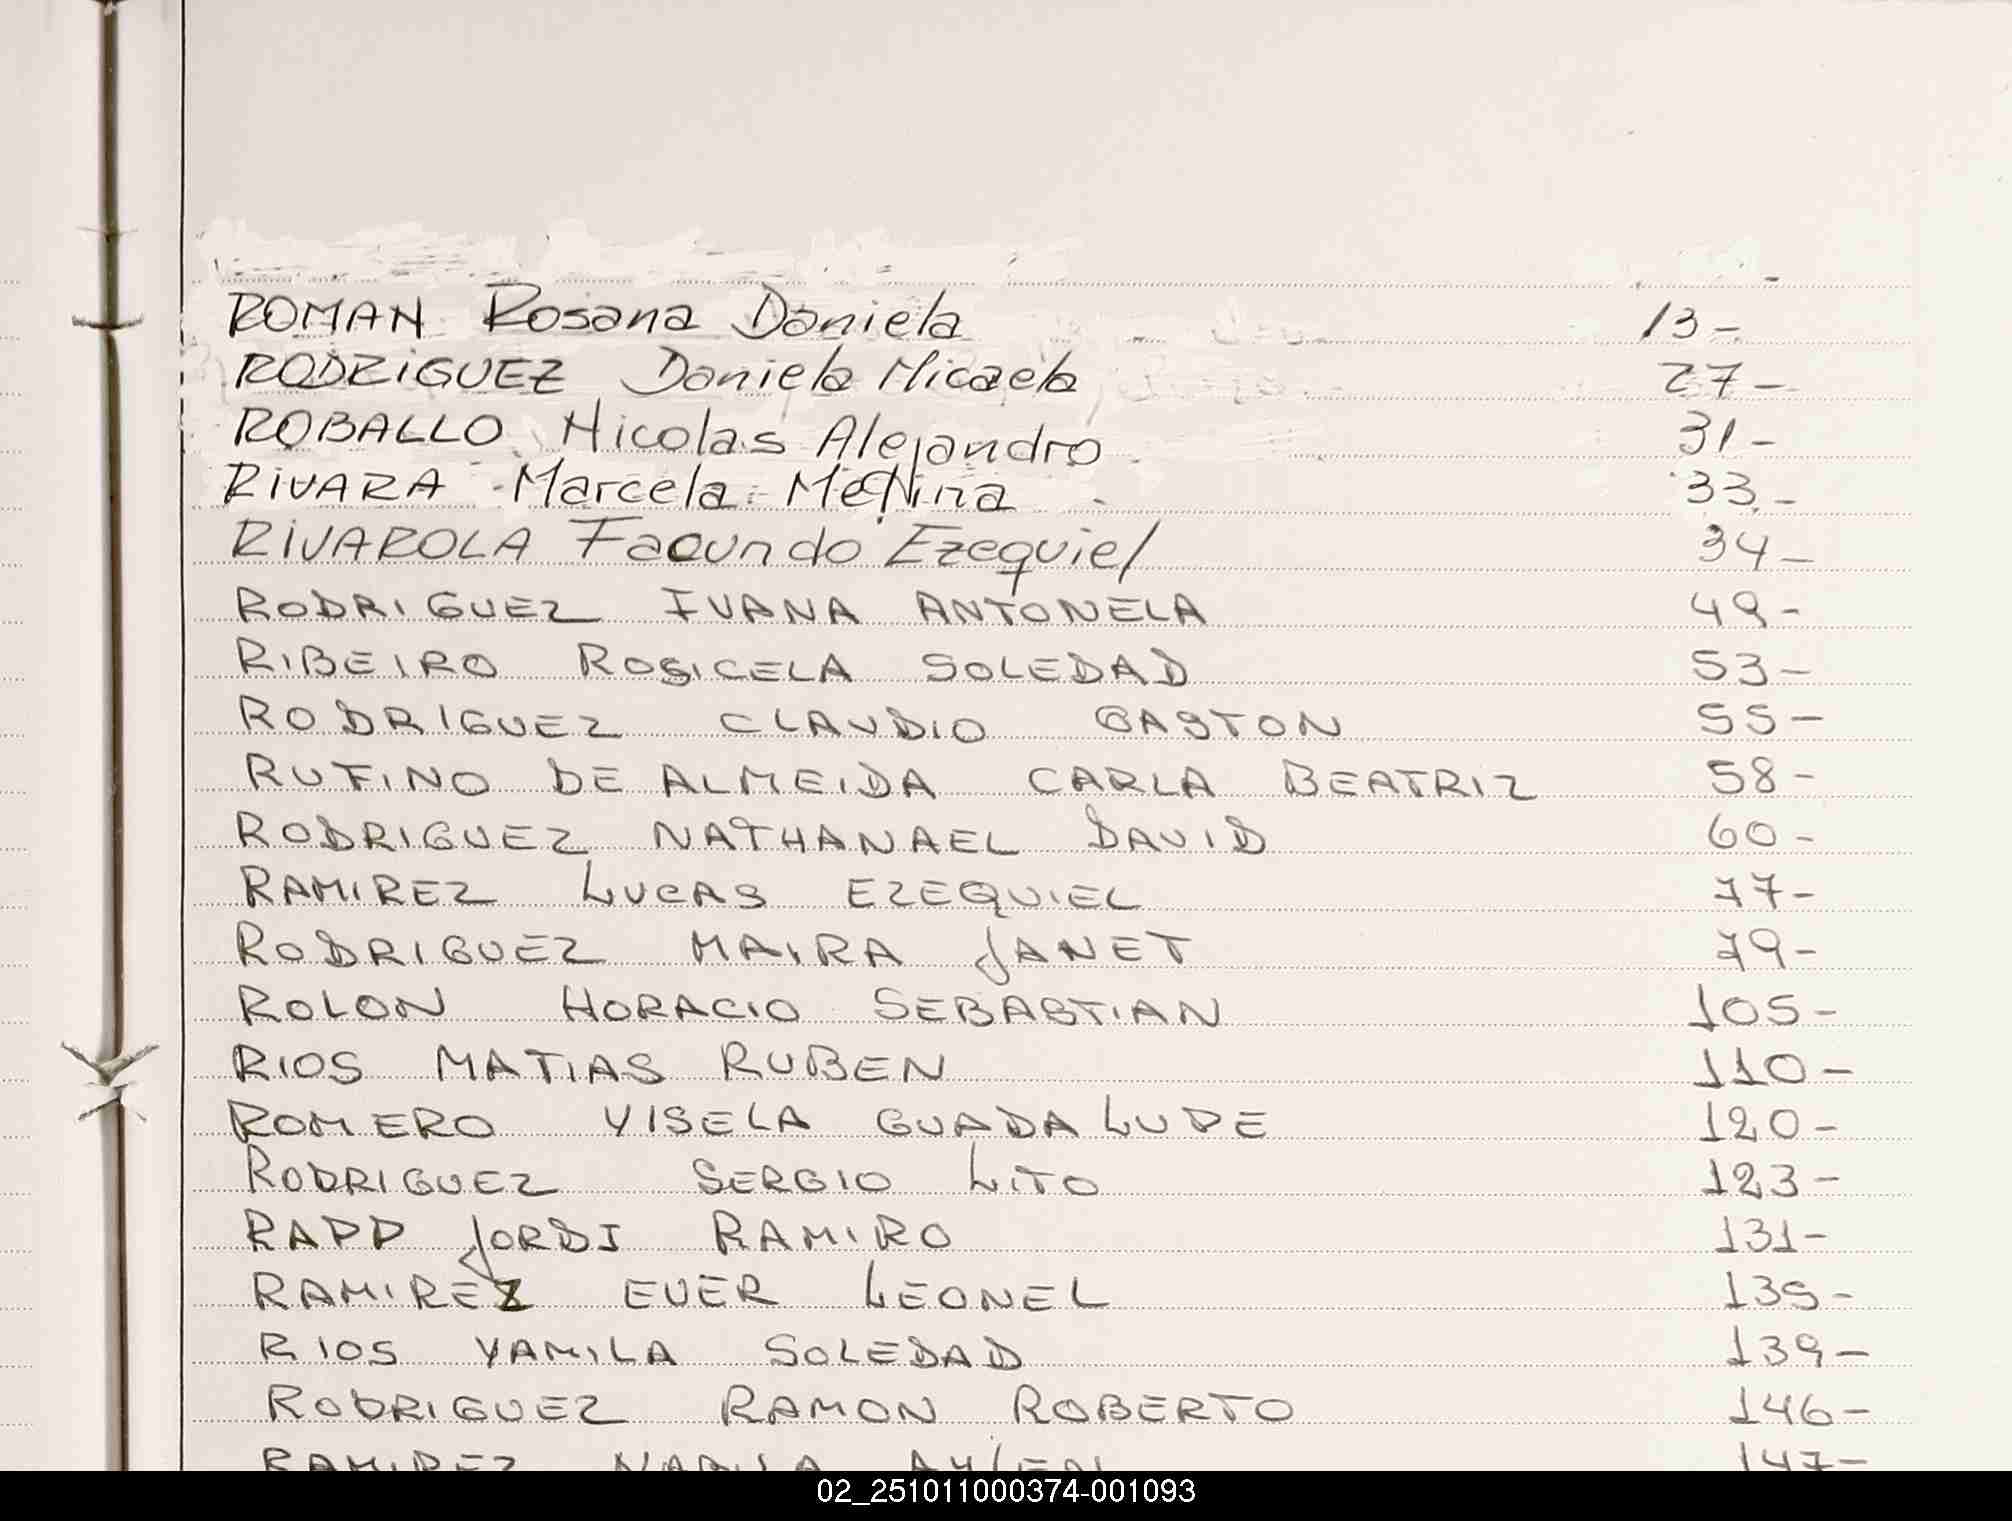 ROMAN Rosana Daniela 13-
RODRIGUEZ Daniela Micaela 27-
ROBALLO Nicolas Alejandro 31-
RIVARA Marcela 33-
RIVAROLA Facundo Ezequiel 34-
RODRIGUEZ IVANA ANTONELA 49-
RIBEIRO ROSICELA SOLEDAD 53-
RODRIGUEZ CLAUDIO GASTON 55-
RUFINO DE ALMEIDA CARLA BEATRIZ 58-
RODRIGUEZ NATHANAEL DAVID 60-
RAMIREZ LUCAS EZEQUIEL 77-
RODRIGUEZ MAIRA JANET 79-
ROLON HORACIO SEBASTIAN 105-
RIOS MATIAS RUBEN 110-
ROMERO YISELA GUADALUPE 120-
RODRIGUEZ SERGIO LITO 123-
RAPP JORDI RAMIRO 131-
RAMIREZ EVER LEONEL 135-
RIOS YAMILA SOLEDAD 139-
RODRIGUEZ RAMON ROBERTO 146-
RAMIREZ 147-
02_251011000374-001093